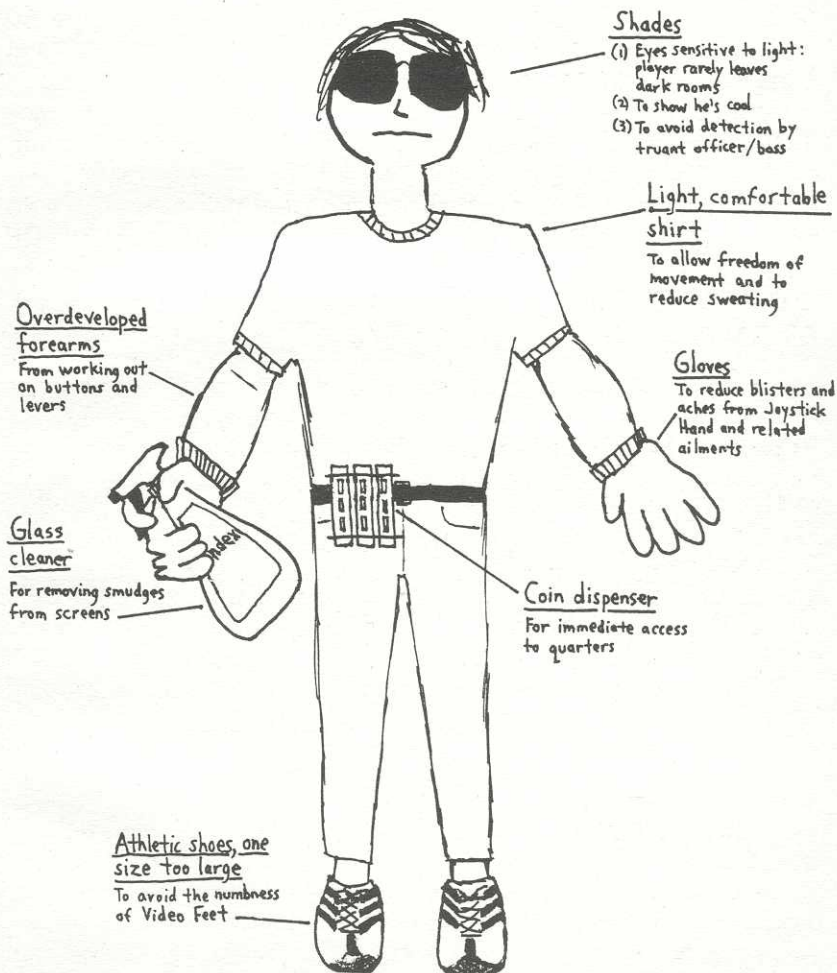 Shades
(1) Eyes sensitive to light:
player rarely leaves
dark rooms
(2) To show he's cool
(3) To avoid detection by
truant officer/boss
Light, comfortable
shirt
To allow freedom of
movement and to
reduce sweating
Overdeveloped
forearms
From working out
on buttons and
levers
Gloves
To reduce blisters and
aches from Joystick
Hand and related
ailments
Glass
cleaner
For removing smudges
from screens
ndex
Coin dispenser
For immediate access
to quarters
Athletic shoes, one
size too large
To avoid the numbness
of Video Feet